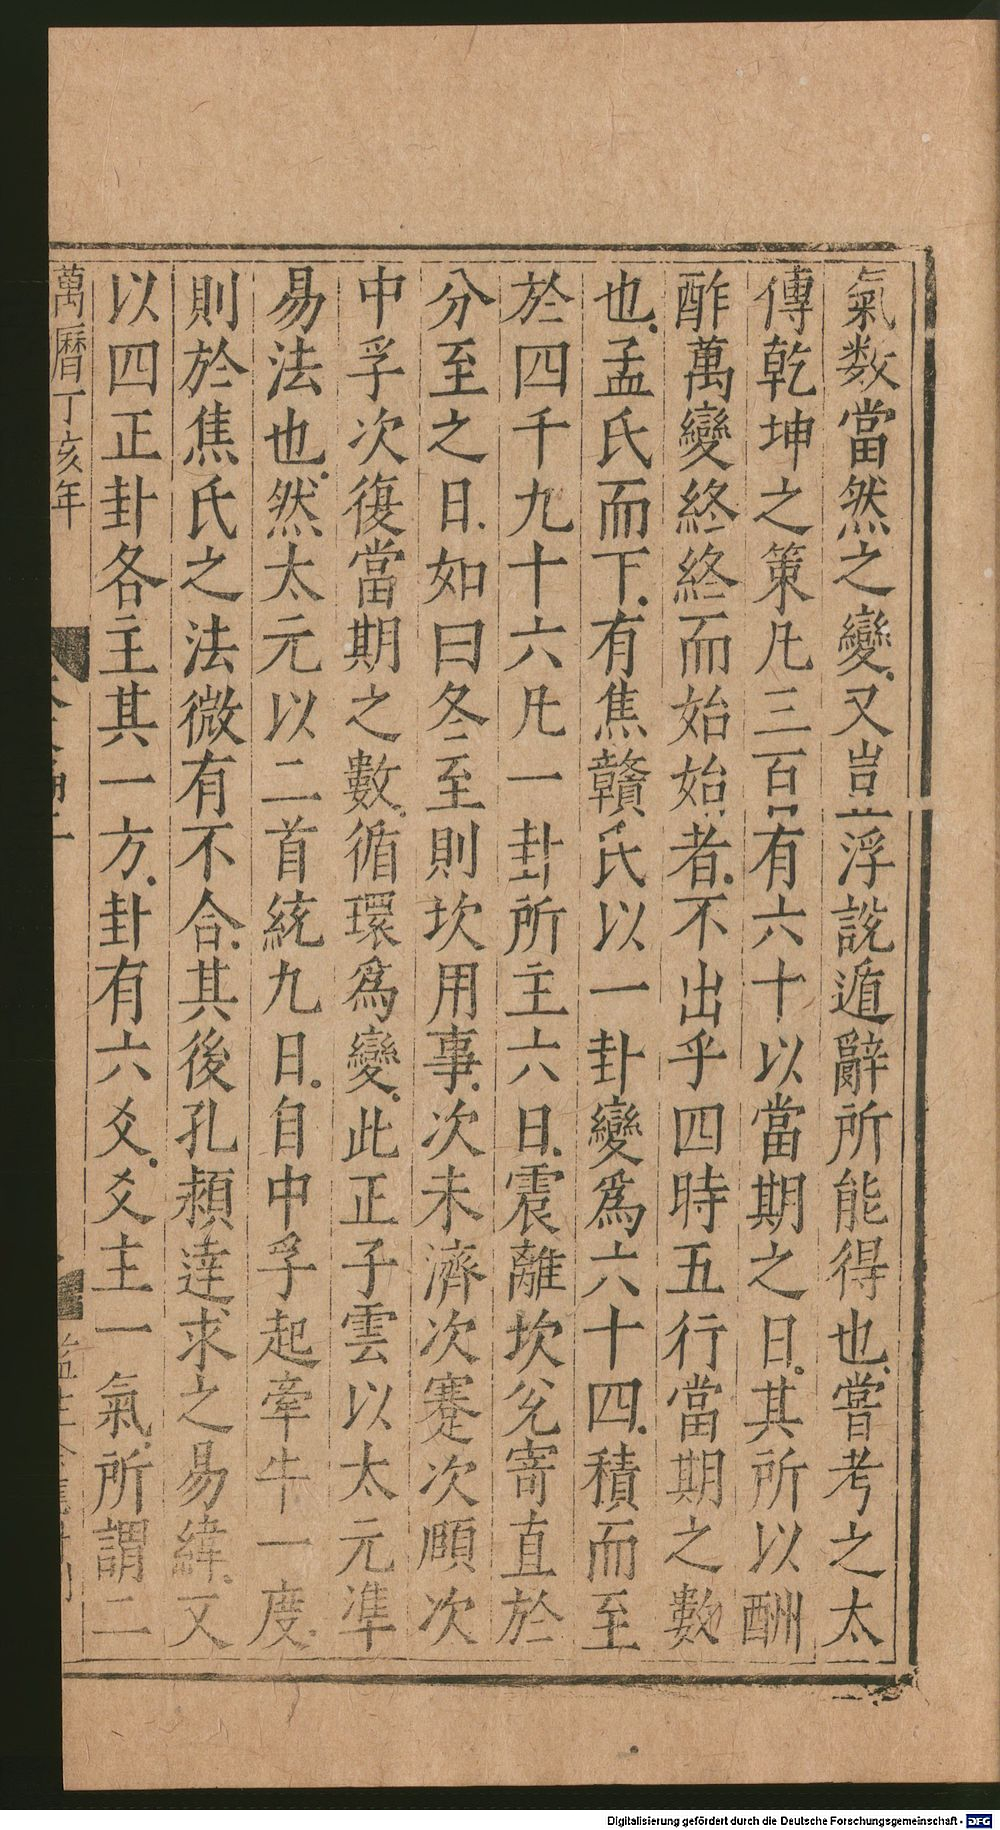 氣数當然之變又豈浮說遁辭所能得也嘗考之太
傳乾坤之策凡三百有六十以當期之日其所以酬
酢萬變終終而始始者不出乎四時五行當期之數
也孟氏而下有焦贛氏以一卦變爲六十四積而至
於四千九十六凡一卦所主六日震離坎兊寄直於
分至之日如曰冬至則坎用事次未濟次蹇次頤次
中孚次復當期之數循環爲變此正子雲以太元準
易法也然太元以二首統九日自中孚起牽牛一度
則於焦氏之法微有不合其後孔頴達求之易緯又
以四正卦各主其一方卦有六爻爻主一氣所謂二
萬曆丁亥年
Digitalisierung gefördert durch die Deutsche Forschungsgemeinschaft - DFG